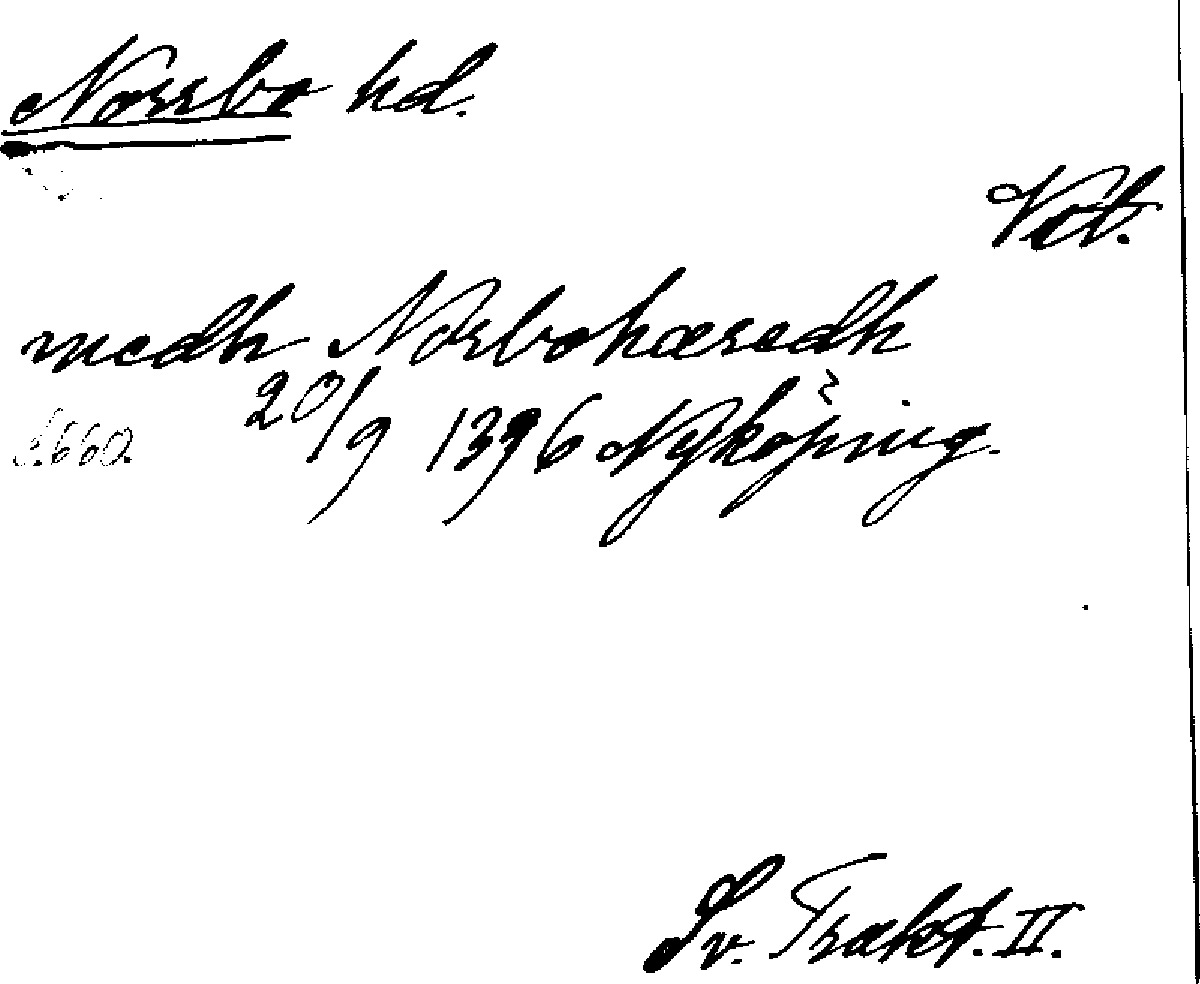 Norrbo hd.
Vst.
medh Norbohæredh
20/9 1396 Nyköping.
s. 660.
Sv. Trakt. II.